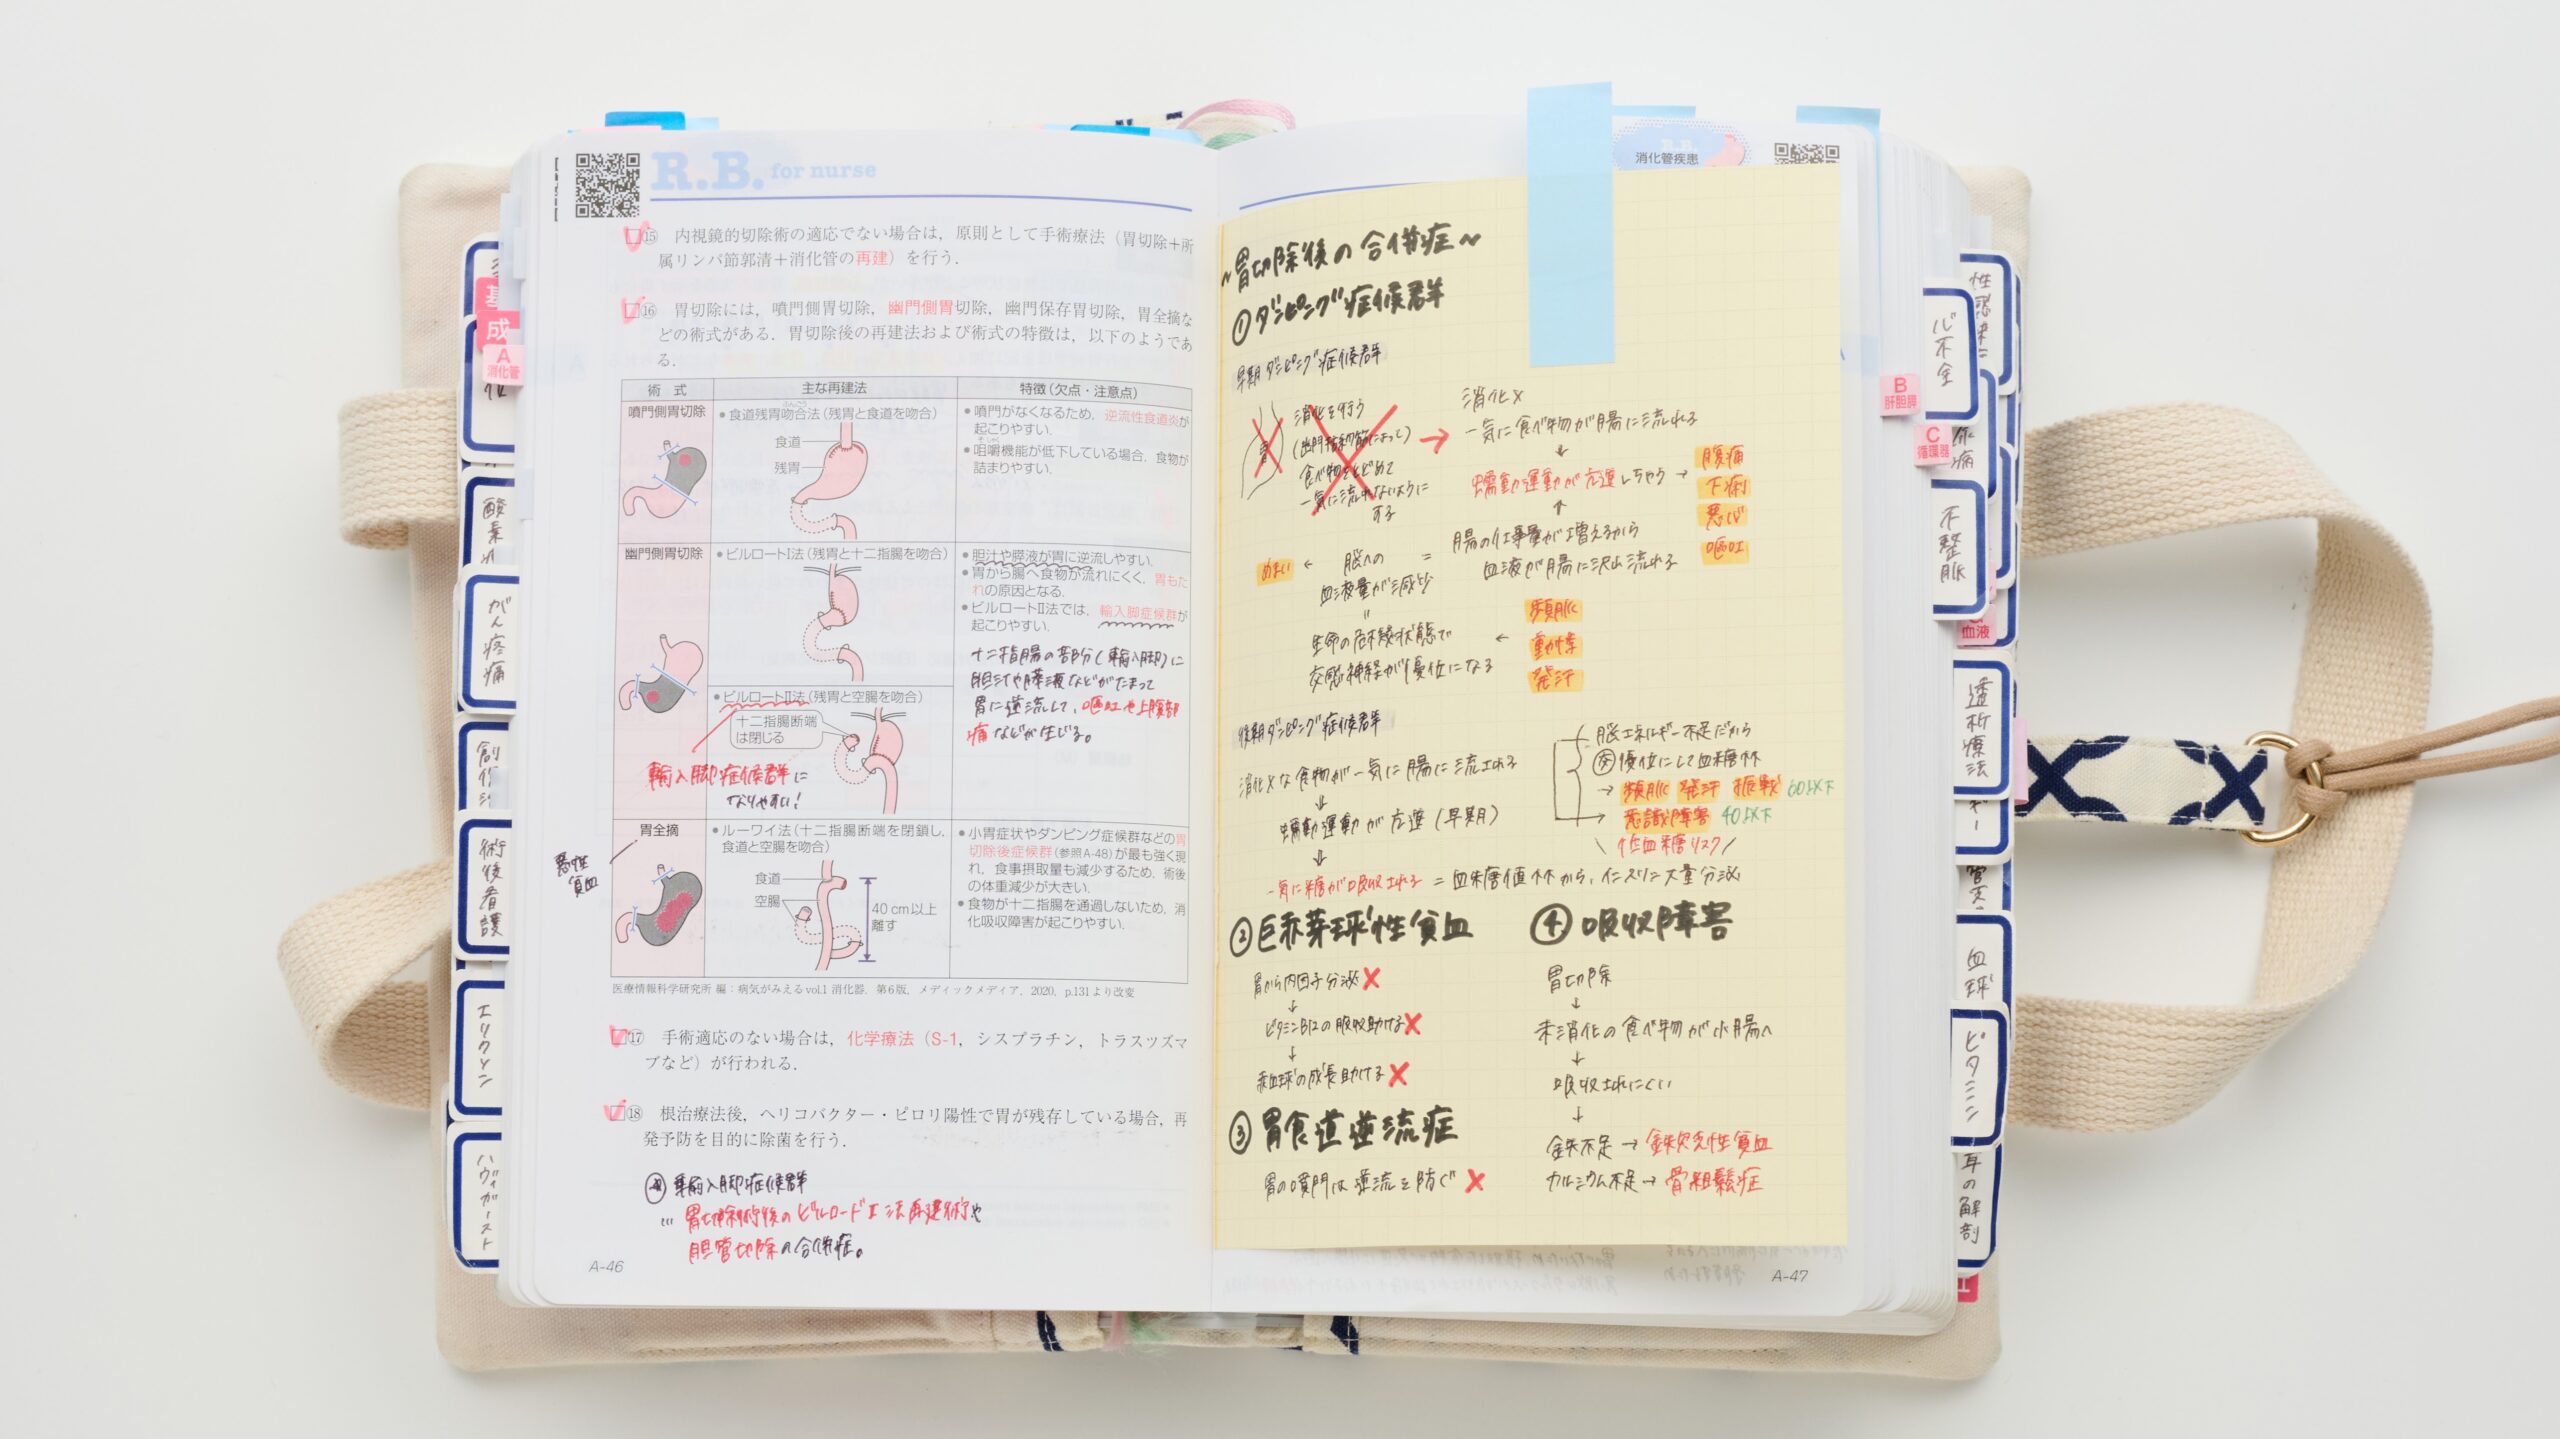 R.B. for nurse
⑮ 内視鏡的切除術の適応でない場合は，原則として手術療法（胃切除＋所
属リンパ節郭清＋消化管の再建）を行う．
⑯ 胃切除には，噴門側胃切除，幽門側胃切除，幽門保存胃切除，胃全摘な
どの術式がある．胃切除後の再建法および術式の特徴は，以下のようであ
る．
術 式
主な再建法
特徴（欠点・注意点）
噴門側胃切除
●食道残胃吻合法（残胃と食道を吻合）
食道
残胃
●噴門がなくなるため，逆流性食道炎が
起こりやすい．
●咀嚼機能が低下している場合，食物が
詰まりやすい．
幽門側胃切除
●ビルロートⅠ法（残胃と十二指腸を吻合）
●胆汁や膵液が胃に逆流しやすい．
●胃から腸へ食物が流れにくく，胃もた
れの原因となる．
●ビルロートⅡ法では，輸入脚症候群が
起こりやすい．
十二指腸の盲部分（輸入脚）に
胆汁や膵液などがたまって
胃に逆流して、嘔吐や上腹部
痛などが生じる。
●ビルロートⅡ法（残胃と空腸を吻合）
十二指腸断端
は閉じる
輸入脚症候群に
なりやすい！
胃全摘
悪性
貧血
●ルーワイ法（十二指腸断端を閉鎖し，
食道と空腸を吻合）
食道
空腸
40 cm以上
離す
●小胃症状やダンピング症候群などの胃
切除後症候群（参照A-48）が最も強く現
れ，食事摂取量も減少するため，術後
の体重減少が大きい．
●食物が十二指腸を通過しないため，消
化吸収障害が起こりやすい．
医療情報科学研究所 編：病気がみえるvol.1 消化器．第6版，メディックメディア，2020，p.131より改変
⑰ 手術適応のない場合は，化学療法（S-1，シスプラチン，トラスツズマ
ブなど）が行われる．
⑱ 根治療法後，ヘリコバクター・ピロリ陽性で胃が残存している場合，再
発予防を目的に除菌を行う．
輸入脚症候群
… 胃切除術後のビルロードⅡ法再建術や
胆管切除の合併症。
A-46
R.B.
消化管疾患
~胃切除後の合併症~
①ダンピング症候群
早期ダンピング症候群
胃
消化を行う
(幽門括約筋によって)
食べ物をとどめて
一気に流れないように
する
消化×
一気に食べ物が腸に流れる
↓
蠕動運動が亢進しちゃう → 腹痛
下痢
悪心
嘔吐
↑
腸の仕事量が増えるから
血液が腸に沢山流れる
=
脳への
血液量が減少
→ めまい
"
生命の危機状態で
交感神経が優位になる
頻脈
動悸
発汗
後期ダンピング症候群
消化×な食物が一気に腸に流れる
↓
蠕動運動が亢進（早期）
↓
一気に糖が吸収される = 血糖値↑↑から、インスリン大量分泌
脳エネルギー不足だから
交優位にして血糖↑↑
→ 頻脈 発汗 振戦 60以下
→ 意識障害 40以下
\ 低血糖リスク /
②巨赤芽球性貧血
胃から内因子分泌×
↓
ビタミンB12の吸収助ける×
↓
赤血球の成長助ける×
③胃食道逆流症
胃の噴門は逆流を防ぐ×
④吸収障害
胃切除
↓
未消化の食べ物が小腸へ
↓
吸収されにくい
↓
鉄不足→鉄欠乏性貧血
カルシウム不足→骨粗鬆症
A-47
基
成
A
消化管
がん疼痛
術後看護
エリクソン
ハヴィガースト
心不全
B
肝胆膵
C
循環器
不整脈
血液
透析療法
血球
ビタミン
耳の解剖